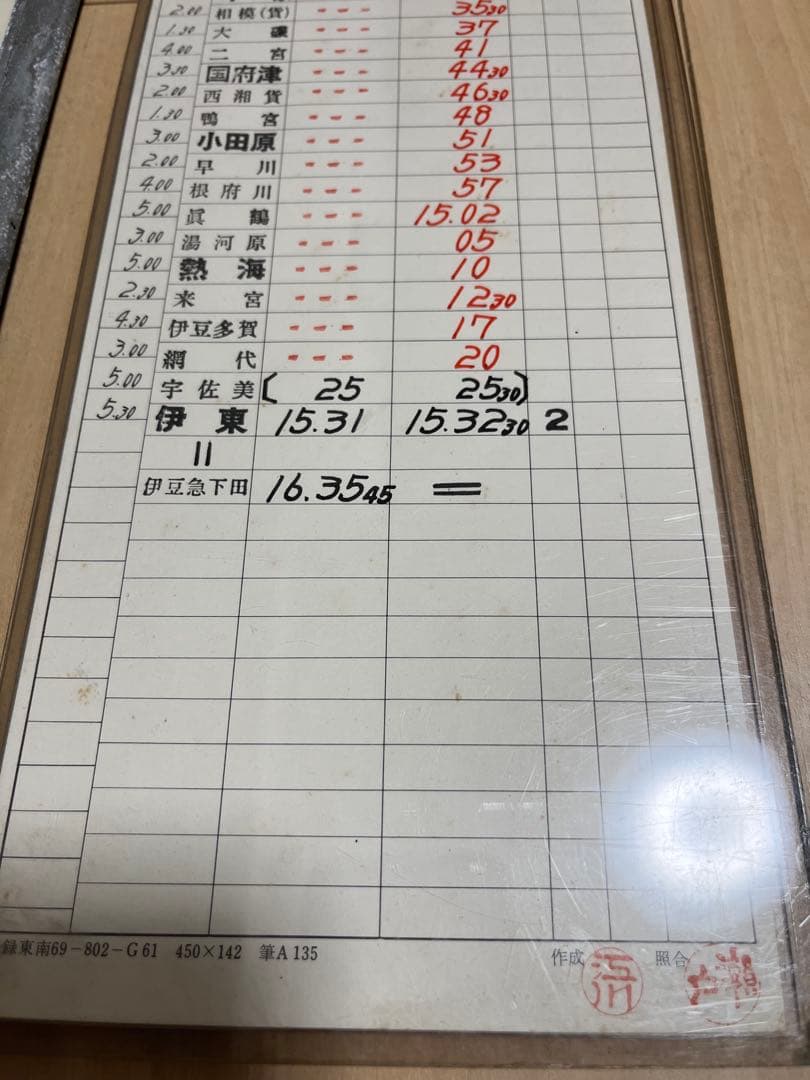 2.00 相模(貨) --- 35 30
1.30 大磯 --- 37
4.00 二宮 --- 41
3.30 国府津 --- 44 30
2.00 西湘貨 --- 46 30
1.30 鴨宮 --- 48
3.00 小田原 --- 51
2.00 早川 --- 53
4.00 根府川 --- 57
5.00 眞鶴 --- 15.02
3.00 湯河原 --- 05
5.00 熱海 --- 10
2.30 来宮 --- 12 30
4.30 伊豆多賀 --- 17
3.00 網代 --- 20
5.00 宇佐美 ( 25 25 30 )
5.30 伊東 15.31 15.32 30 2
||
伊豆急下田 16.35 45 =
録東南69-802-G61 450×142 筆A135
作成 江川 照合